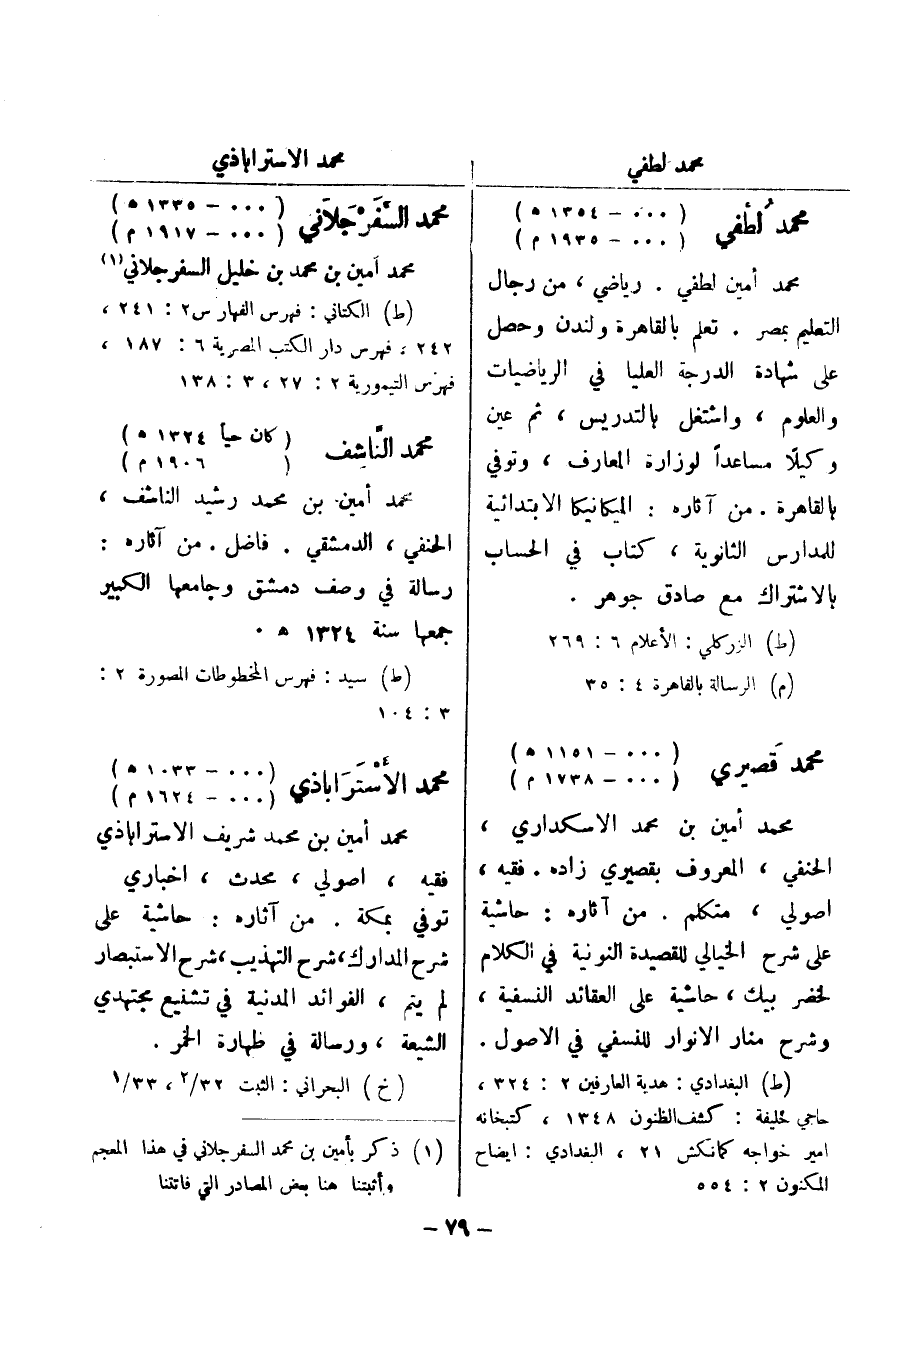 محمد لطفي
محمد لُطْفي ( ٠٠٠ – ١٣٥٤ ه )
( ٠٠٠ – ١٩٣٥ م )
محمد أمين لطفي . رياضي ، من رجال
التعليم بمصر . تعلم بالقاهرة ولندن وحصل
على شهادة الدرجة العليا في الرياضيات
والعلوم ، واشتغل بالتدريس ، ثم عين
وكيلًا مساعداً لوزارة المعارف ، وتوفي
بالقاهرة . من آثاره : الميكانيكا الابتدائية
للمدارس الثانوية ، كتاب في الحساب
بالاشتراك مع صادق جوهر .
(ط) الزركلي : الأعلام ٦ : ٢٦٩
(م) الرسالة بالقاهرة ٤ : ٣٥
محمد قَصيري ( ٠٠٠ – ١١٥١ ه )
( ٠٠٠ – ١٧٣٨ م )
محمد أمين بن محمد الاسكداري ،
الحنفي ، المعروف بقصيري زاده . فقيه ،
اصولي ، متكلم . من آثاره : حاشية
على شرح الخيالي للقصيدة النونية في الكلام
لخضر بيك ، حاشية على العقائد النسفية ،
وشرح منار الانوار للنسفي في الاصول .
(ط) البغدادي : هدية العارفين ٢ : ٣٢٤ ،
حاجي خليفة : كشف الظنون ١٣٤٨ ، كتبخانه
امير خواجه كمانكش ٢١ ، البغدادي : ايضاح
المكنون ٢ : ٥٥٤
محمد الاستراباذي
محمد السَّفَرْجَلَاني ( ٠٠٠ – ١٣٣٥ ه )
( ٠٠٠ – ١٩١٧ م )
محمد امين بن محمد بن خليل السفرجلاني (١)
(ط) الكتاني : فهرس الفهارس ٢ : ٢٤١ ،
٢٤٢ ، فهرس دار الكتب المصرية ٦ : ١٨٧ ،
فهرس التيمورية ٢ : ٢٧ ، ٣ : ١٣٨
محمد النَّاشِف ( كان حياً ١٣٢٤ ه )
( ١٩٠٦ م )
محمد أمين بن محمد رشيد الناشف ،
الحنفي ، الدمشقي . فاضل . من آثاره :
رسالة في وصف دمشق وجامعها الكبير
جمعها سنة ١٣٢٤ ه .
(ط) سيد : فهرس المخطوطات المصورة ٢ :
٣ : ١٠٤
محمد الأَسْتَرَاباذي ( ٠٠٠ – ١٠٣٣ ه )
( ٠٠٠ – ١٦٢٤ م )
محمد أمين بن محمد شريف الاستراباذي
فقيه ، اصولي ، محدث ، اخباري
توفي بمكة . من آثاره : حاشية على
شرح المدارك ، شرح التهذيب ، شرح الاستبصار
لم يتم ، الفوائد المدنية في تشنيع مجتهدي
الشيعة ، ورسالة في طهارة الخمر .
(خ) البحراني : الثبت ٢/٣٢ ، ١/٣٣
(١) ذكر بأمين بن محمد السفرجلاني في هذا المعجم
وأثبتنا هنا بعض المصادر التي فاتتنا
– ٧٩ –